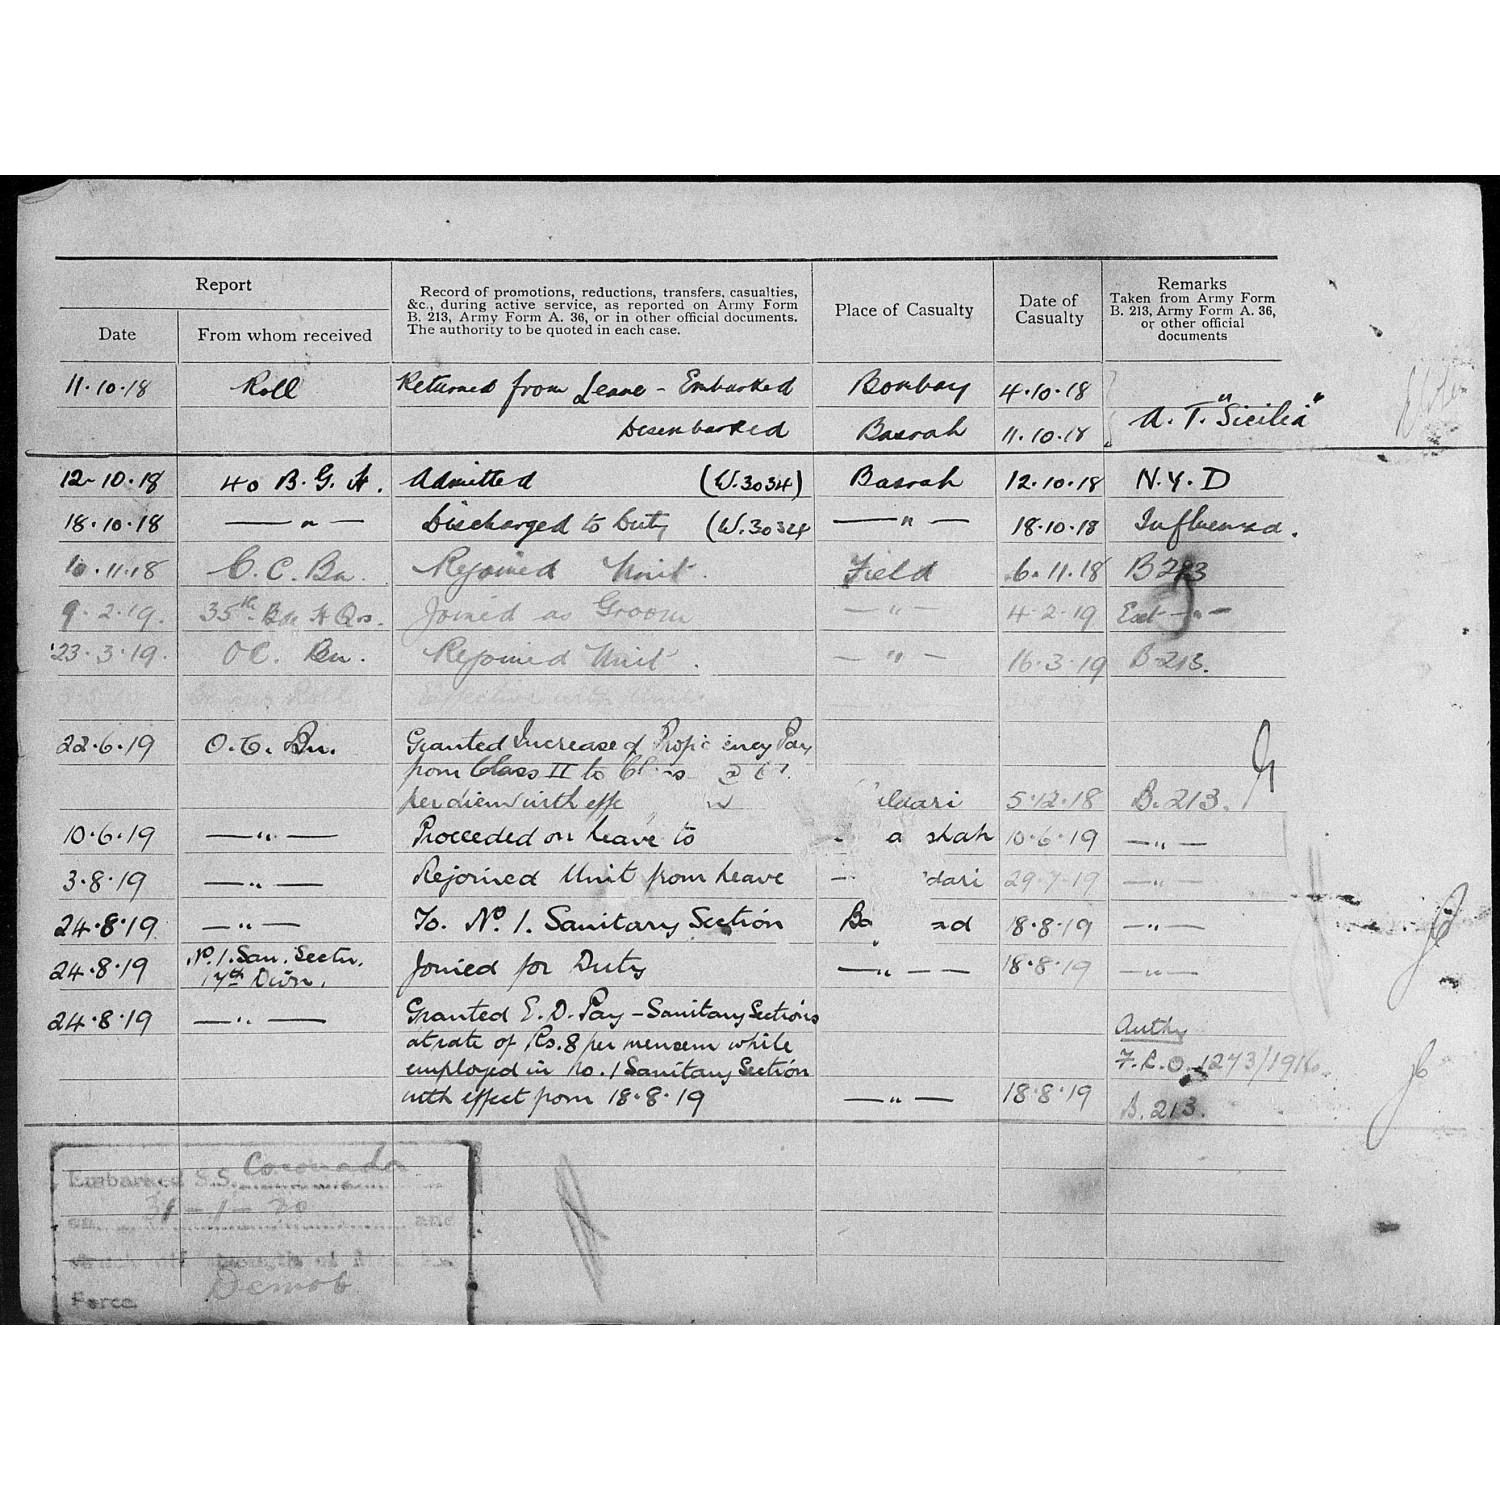 Report
Record of promotions, reductions, transfers, casualties,
&c., during active service, as reported on Army Form
B. 213, Army Form A. 36, or in other official documents.
The authority to be quoted in each case.
Place of Casualty
Date of
Casualty
Remarks
Taken from Army Form
B. 213, Army Form A. 36,
or other official
documents
Date
From whom received
11.10.18 Roll Returned from Leave - Embarked Bombay 4.10.18
Disembarked Basrah 11.10.18 A.T. "Sicilia"
12-10.18 40 B.G.H. Admitted (W.3034) Basrah 12.10.18 N.Y.D
18.10.18 — " — Discharged to Duty (W.3034 — " — 18.10.18 Influenza.
10.11.18 O.C. Bn. Rejoined Unit. Field 6.11.18 B213
9.2.19. 35th Bde H Qrs. Joined as Groom — " — 4.2.19 — " —
23.3.19. OC. Bn. Rejoined Unit. — " — 16.3.19 B.213.
Roll Effective with Unit
22.6.19 O.C. Bn. Granted Increase of Profic iency Pay
from Class II to Cl ss @
per diem with eff ildari 5.12.18 B.213.
10.6.19 — " — Proceeded on leave to shah 10.6.19 — " —
3.8.19 — " — Rejoined Unit from leave — dari 29.7.19 — " —
24.8.19 — " — To. No. 1. Sanitary Section Ba ad 18.8.19 — " —
24.8.19 No.1. San. Sectn.
17th Divn. Joined for Duty — " — 18.8.19 — " —
24.8.19 — " — Granted E.D. Pay - Sanitary Sections
at rate of Rs.8 per mensem while Authy
employed in No.1 Sanitary Section F.R.O. 1273/1916.
with effect from 18.8.19 — " — 18.8.19 B.213.
Embarked S.S. Coronada
on 31-1-20 and
struck off strength of
Force. Demob